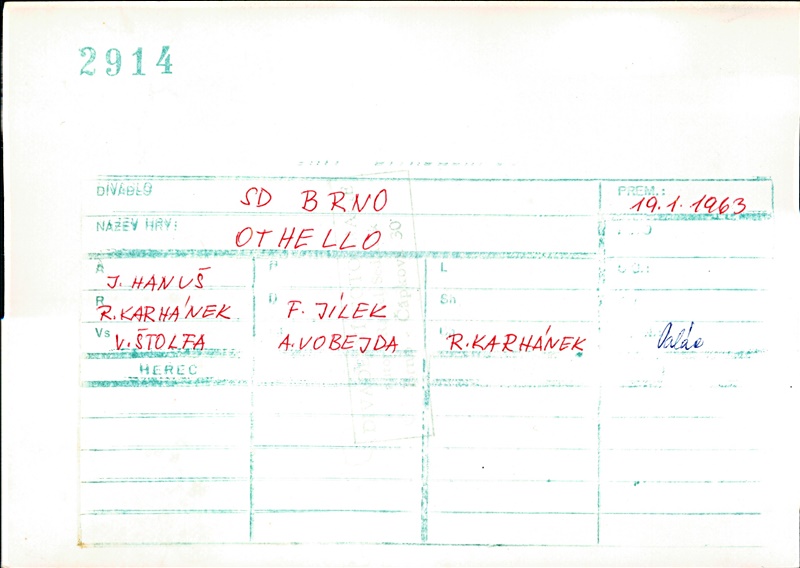 2914
DIVADLO SD BRNO PREM.: 19.1.1963
NÁZEV HRY: OTHELLO
A J. HANUŠ P L
R R. KARHÁNEK D F. JÍLEK Sn
Vs V. ŠTOLFA A. VOBEJDA R. KARHÁNEK
HEREC